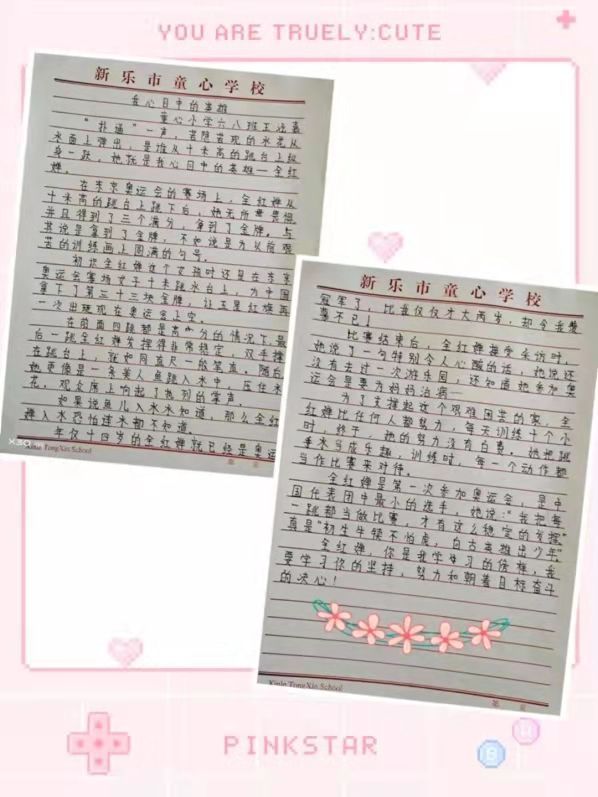 YOU ARE TRUELY:CUTE
新乐市童心学校
我心目中的英雄
童心小学六八班王还嘉
“扑通”一声，若隐若现的水花从
水面上弹出，是谁从十米高的跳台上纵
身一跃，她就是我心目中的英雄—全红
婵。
在东京奥运会的赛场上，全红婵从
十米高的跳台上跳下后，她无所畏惧
并且得到了三个满分，拿到了金牌。与
其说是拿到了金牌，不如说是为从前艰
苦的训练画上圆满的句号。
初识全红婵这个女孩时还是在东京
奥运会赛场女子十米跳水台上，为中国
拿下了第三十三块金牌，让五星红旗再
一次出现现在奥运会上空。
在前面四跳都是高分的情况下，最
后一跳全红婵发挥得非常稳定，双手撑
在跳台上，就如同直尺一般笔直。随后
她更像是一条美人鱼跳入水中，压住水
花，观众席上响起了热烈的掌声。
如果说鱼儿入水水知道，那么全红
婵入水恐怕连水都不知道。
年仅十四岁的全红婵就已经是奥运
Xinle TongXin School
第 页
新乐市童心学校
冠军了，比我仅仅才大两岁，却令我羡
慕不已！
比赛结束后，全红婵接受采访时，
她说了一句特别令人心酸的话，她说还
没有去过一次游乐园，还知道她参加奥
运会是要为妈妈治病—
为了支撑起这个艰难困苦的家，全
红婵比任何人都努力，每天训练十个小
时，终于，她的努力没有白费。她把跳
水当成乐趣，训练时，每一个动作都
当作比赛来对待。
全红婵是第一次参加奥运会，是中
国代表团中最小的选手，她说：“我把每
一跳都当做比赛，才有这么稳定的发挥”
真是“初生牛犊不怕虎，自古英雄出少年”
全红婵，你是我学习的榜样，我
要学习你的坚持，努力和朝着目标奋斗
的决心！
Xinle TongXin School
第 页
PINKSTAR